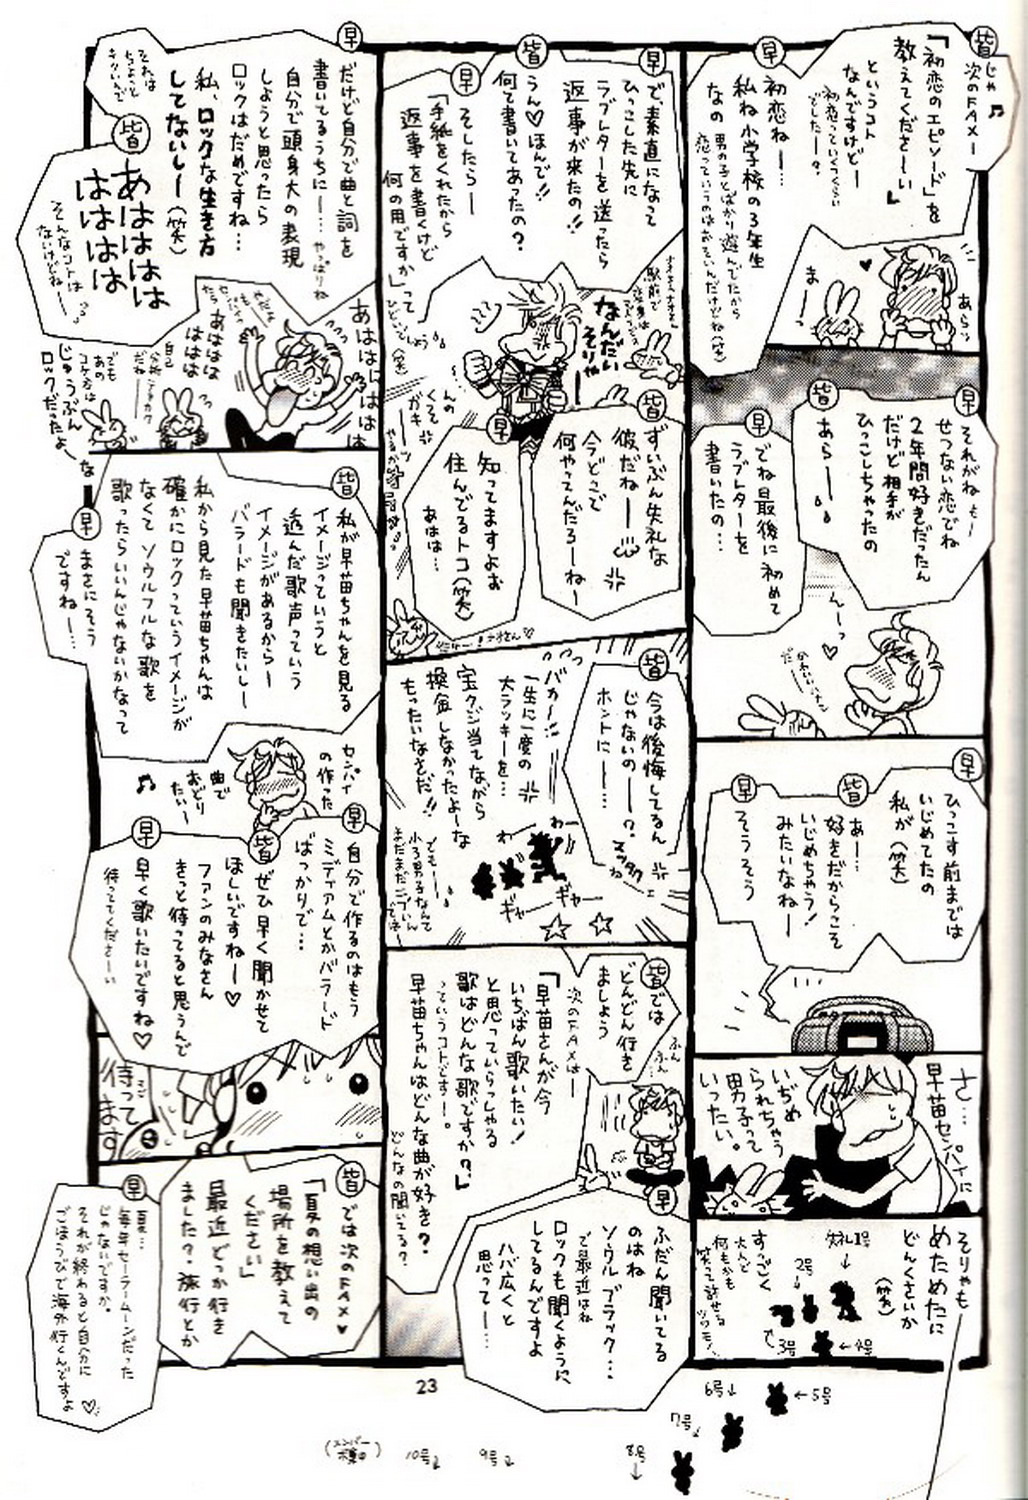 皆
じゃ♫
次のFAXー
「初恋のエピソード」を
教えてくださーい」
というコト
なんですけどー
初恋っていくくらい
でしたー?
早
初恋ねー…
私ね 小学校の3年生
なの
男の子とばかり遊んでたから
まー
あらっ
早
それがねもー
せつない恋でね
2年間好きだったん
だけど相手が
ひっこしちゃったの
皆
あらー
早
でね最後に初めて
ラブレターを
書いたの…
んーっ♡
早
ひっこす前までは
いじめてたの
私が(笑)
皆
あー…
好きだからこそ
いじめちゃう!
みたいなねー
早
そうそう
さ…
早苗センパイに
いぢめ
られちゃう
男子って
いったい。
そりゃも
めためたに
どんくさいか
(笑)
すっごく
大人で
何もかも
笑って許せる
ツワモノ
失礼1号
2号
3号
←4号
←5号
6号↓
7号
8号
↓
9号
10号
早
で、素直になって
ひっこした先に
ラブレターを送ったら
返事が来たの!!
皆
うん♡ほんで!!
何て書いてあったの?
早
そしたらー
「手紙をくれたから
返事を書くけど
何の用ですか」って
ひどいでしょう(笑)
なんだい
そりゃ
んの
くそ
ガキー
皆
ずいぶん失礼な
彼だねー
今どこで
何やってんだろーねー
早
知ってますよお
住んでるトコ(笑)
あはは…
皆
今は後悔してるん
じゃないのー?
ホントにー…
バカー!!
一生に一度の
大ラッキーを…
宝クジ当てながら
換金しなかったよーな
もったいなさだ!!
でもー
小3男子なんて
わー
わー
ギャー
ギャー
皆
では
どんどん行き
ましょう
次のFAXはー
「早苗さんが今
いちばん歌いたい!
と思っていらっしゃる
歌はどんな歌ですか?」
っていうコトですー。
早苗ちゃんはどんな曲が好き?
どんなの聞いてる?
ふん
ふん
早
ふだん聞いてる
のはね
ソウル ブラック…
で最近はね
ロックも聞くように
してるんですよ
ハバ広くと
思ってー…
早
だけど自分で曲と詞を
書いてるうちにー…やっぱりね
自分で頭身大の表現
しようと思ったら
ロックはだめですね…
私、ロックな生き方
してないしー(笑)
それは
ちょっと
皆
あはははは
はははは
そんなコトは
ないけどねー
あははは
ははは
でも
あの
コケ方は
じゅうぶん
ロックだったよーな
皆
私が早苗ちゃんを見る
イメージっていうと
透んだ歌声っていう
イメージがあるからー
バラードも聞きたいしー
私から見た早苗ちゃんは
確かにロックっていうイメージが
なくて ソウルフルな歌を
歌ったらいいんじゃないかなって
早
まさにそう
ですねー…
センパイ
の作った
曲で
おどり
たいー
早
自分で作るのはもう
ミディアムとかバラード
ばっかりで…
皆
ぜひ早く聞かせて
ほしいですねー♡
ファンのみなさん
きっと待ってると思うんで
早
早く歌いたいですね♡
待っててくださーい
待って
ます
皆
では次のFAX♥
「夏の想い出の
場所を教えて
ください」
最近どっか行き
ました?旅行とか
早
夏…
毎年セーラームーンだった
じゃないですか。
それが終わると自分に
ごほうびで海外行くんですよ♡
23